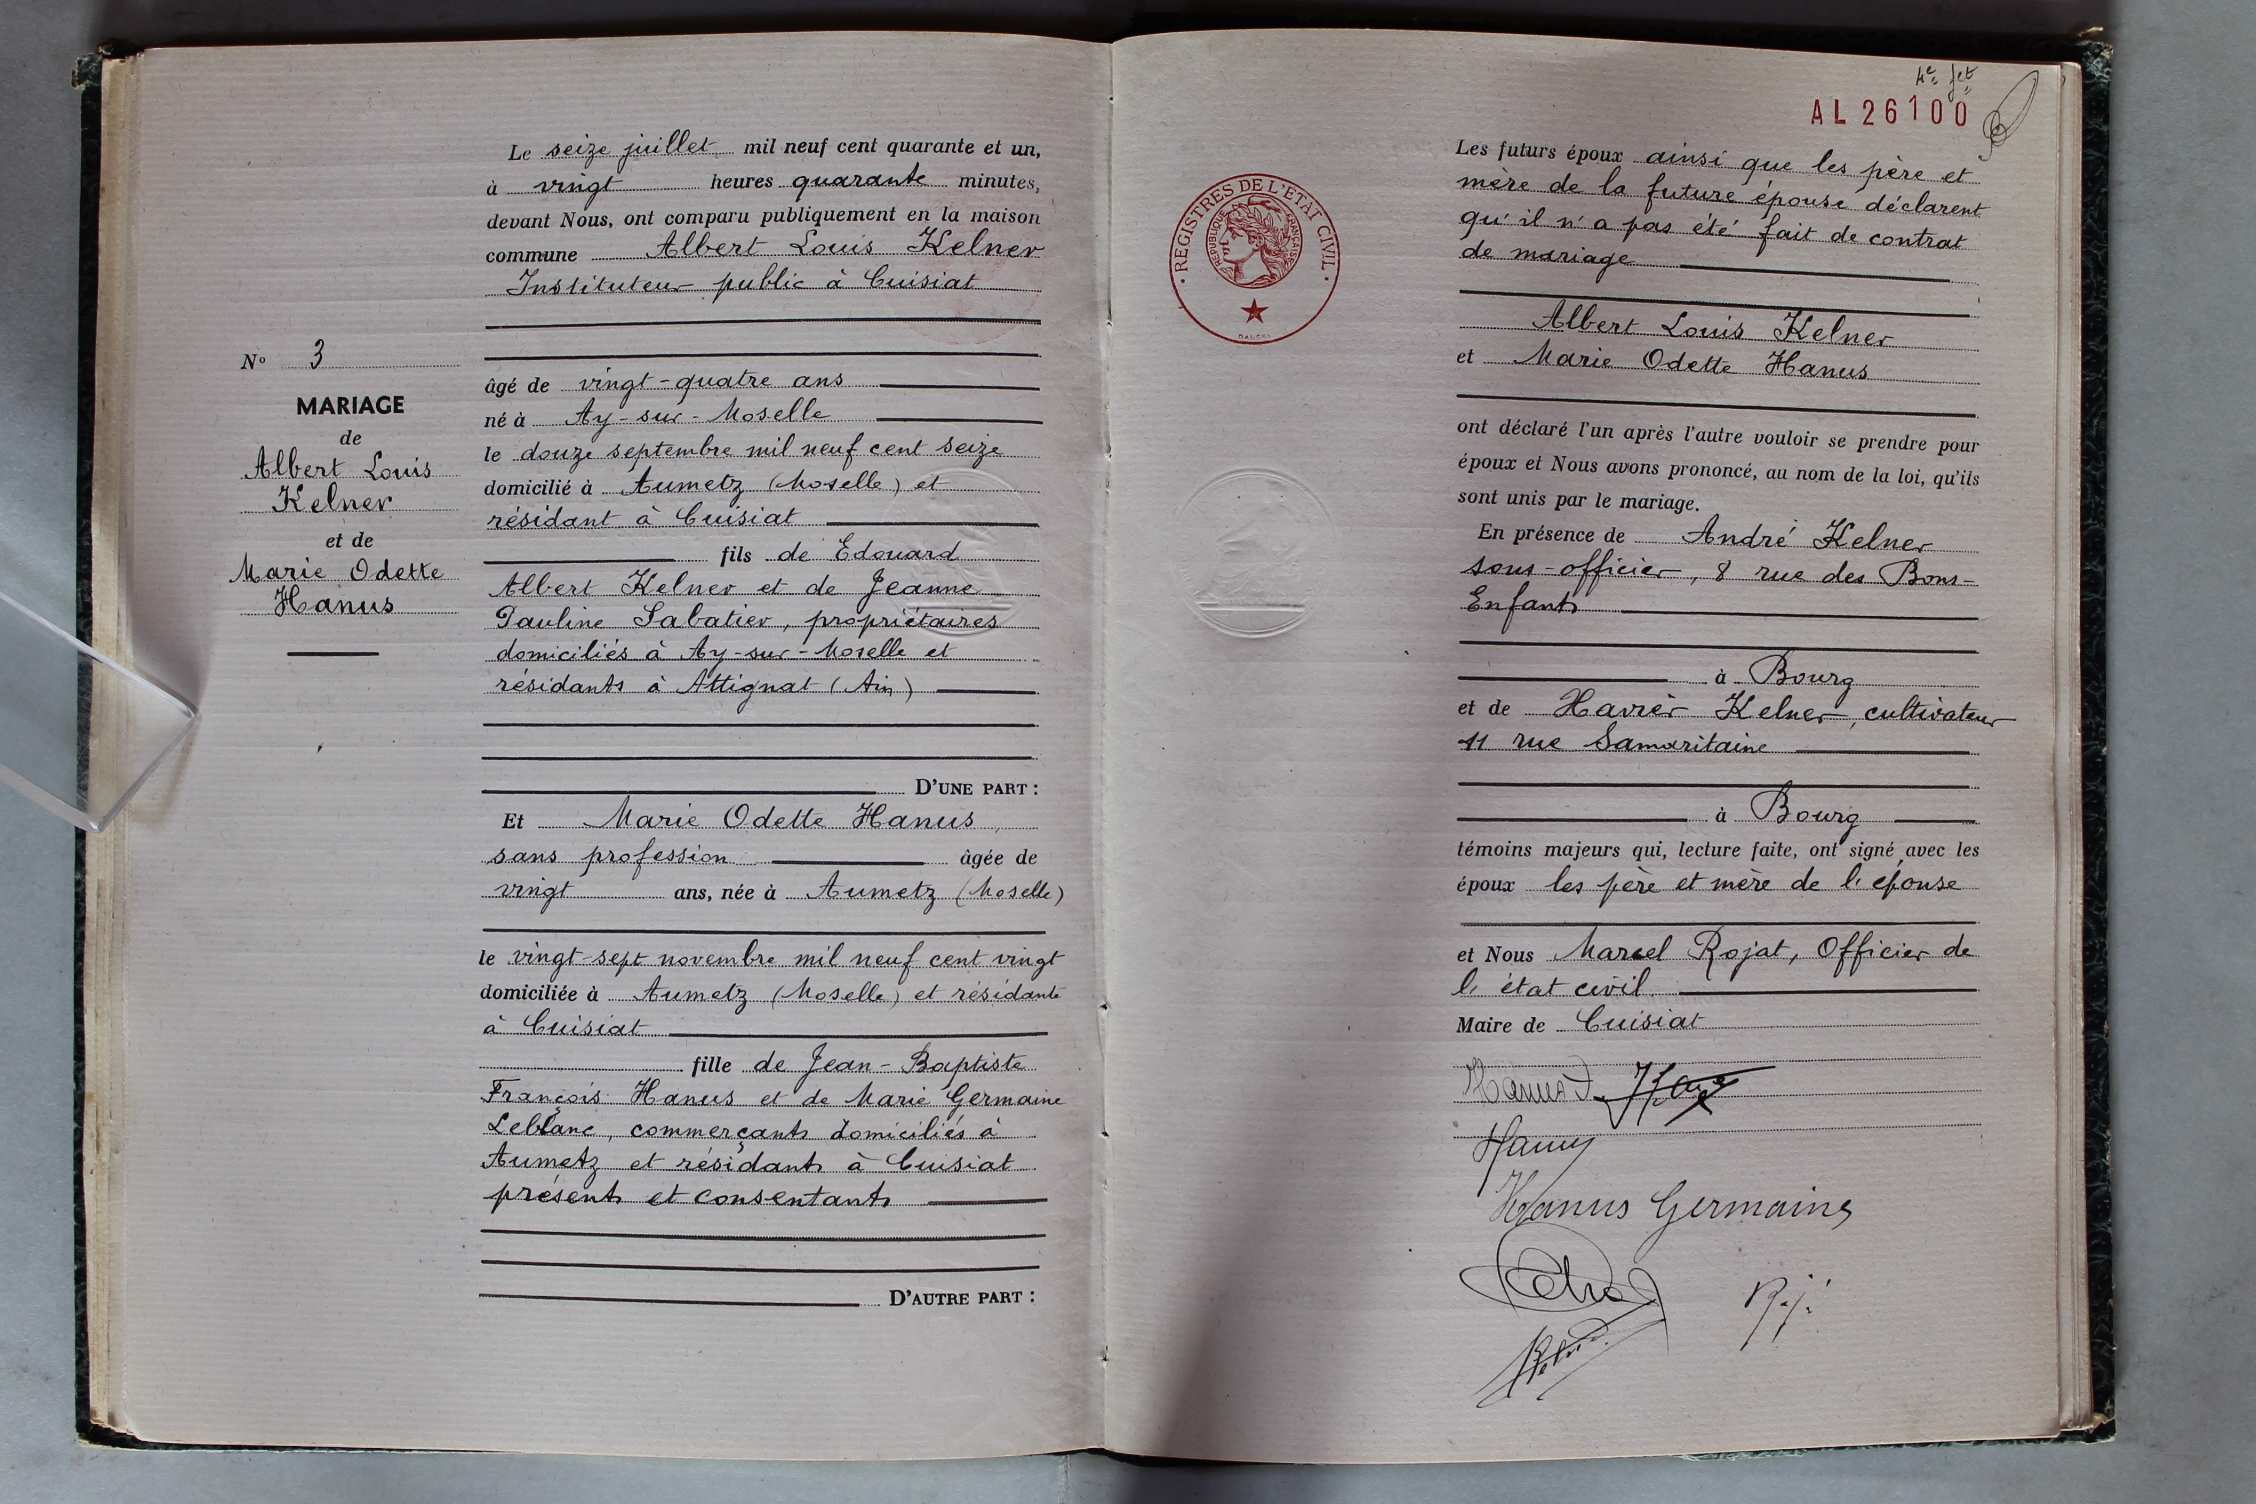 N° 3
MARIAGE
de
Albert Louis
Kelner
et de
Marie Odette
Hanus
Le seize juillet mil neuf cent quarante et un,
à vingt heures quarante minutes,
devant Nous, ont comparu publiquement en la maison
commune Albert Louis Kelner
Instituteur public à Cuisiat
âgé de vingt-quatre ans
né à Ay-sur-Moselle
le douze septembre mil neuf cent seize
domicilié à Aumetz (Moselle) et
résidant à Cuisiat
fils de Edouard
Albert Kelner et de Jeanne
Pauline Sabatier, propriétaires
domiciliés à Ay-sur-Moselle et
résidants à Attignat (Ain)
D'UNE PART :
Et Marie Odette Hanus,
sans profession âgée de
vingt ans, née à Aumetz (Moselle)
le vingt-sept novembre mil neuf cent vingt
domiciliée à Aumetz (Moselle) et résidante
à Cuisiat
fille de Jean-Baptiste
François Hanus et de Marie Germaine
Leblanc, commerçants domiciliés à
Aumetz et résidants à Cuisiat
présents et consentants
D'AUTRE PART :
4e fet
AL 26100
REGISTRES DE L'ETAT CIVIL
REPUBLIQUE FRANÇAISE
Les futurs époux ainsi que les père et
mère de la future épouse déclarent
qu'il n'a pas été fait de contrat
de mariage
Albert Louis Kelner
et Marie Odette Hanus
ont déclaré l'un après l'autre vouloir se prendre pour
époux et Nous avons prononcé, au nom de la loi, qu'ils
sont unis par le mariage.
En présence de André Kelner
sous-officier, 8 rue des Bons-
Enfants
à Bourg
et de Xavier Kelner, cultivateur
11 rue Samaritaine
à Bourg
témoins majeurs qui, lecture faite, ont signé avec les
époux les père et mère de l'épouse
et Nous Marcel Rojat, Officier de
l'état civil
Maire de Cuisiat
Hanus
Hanus
Hanus Germaine